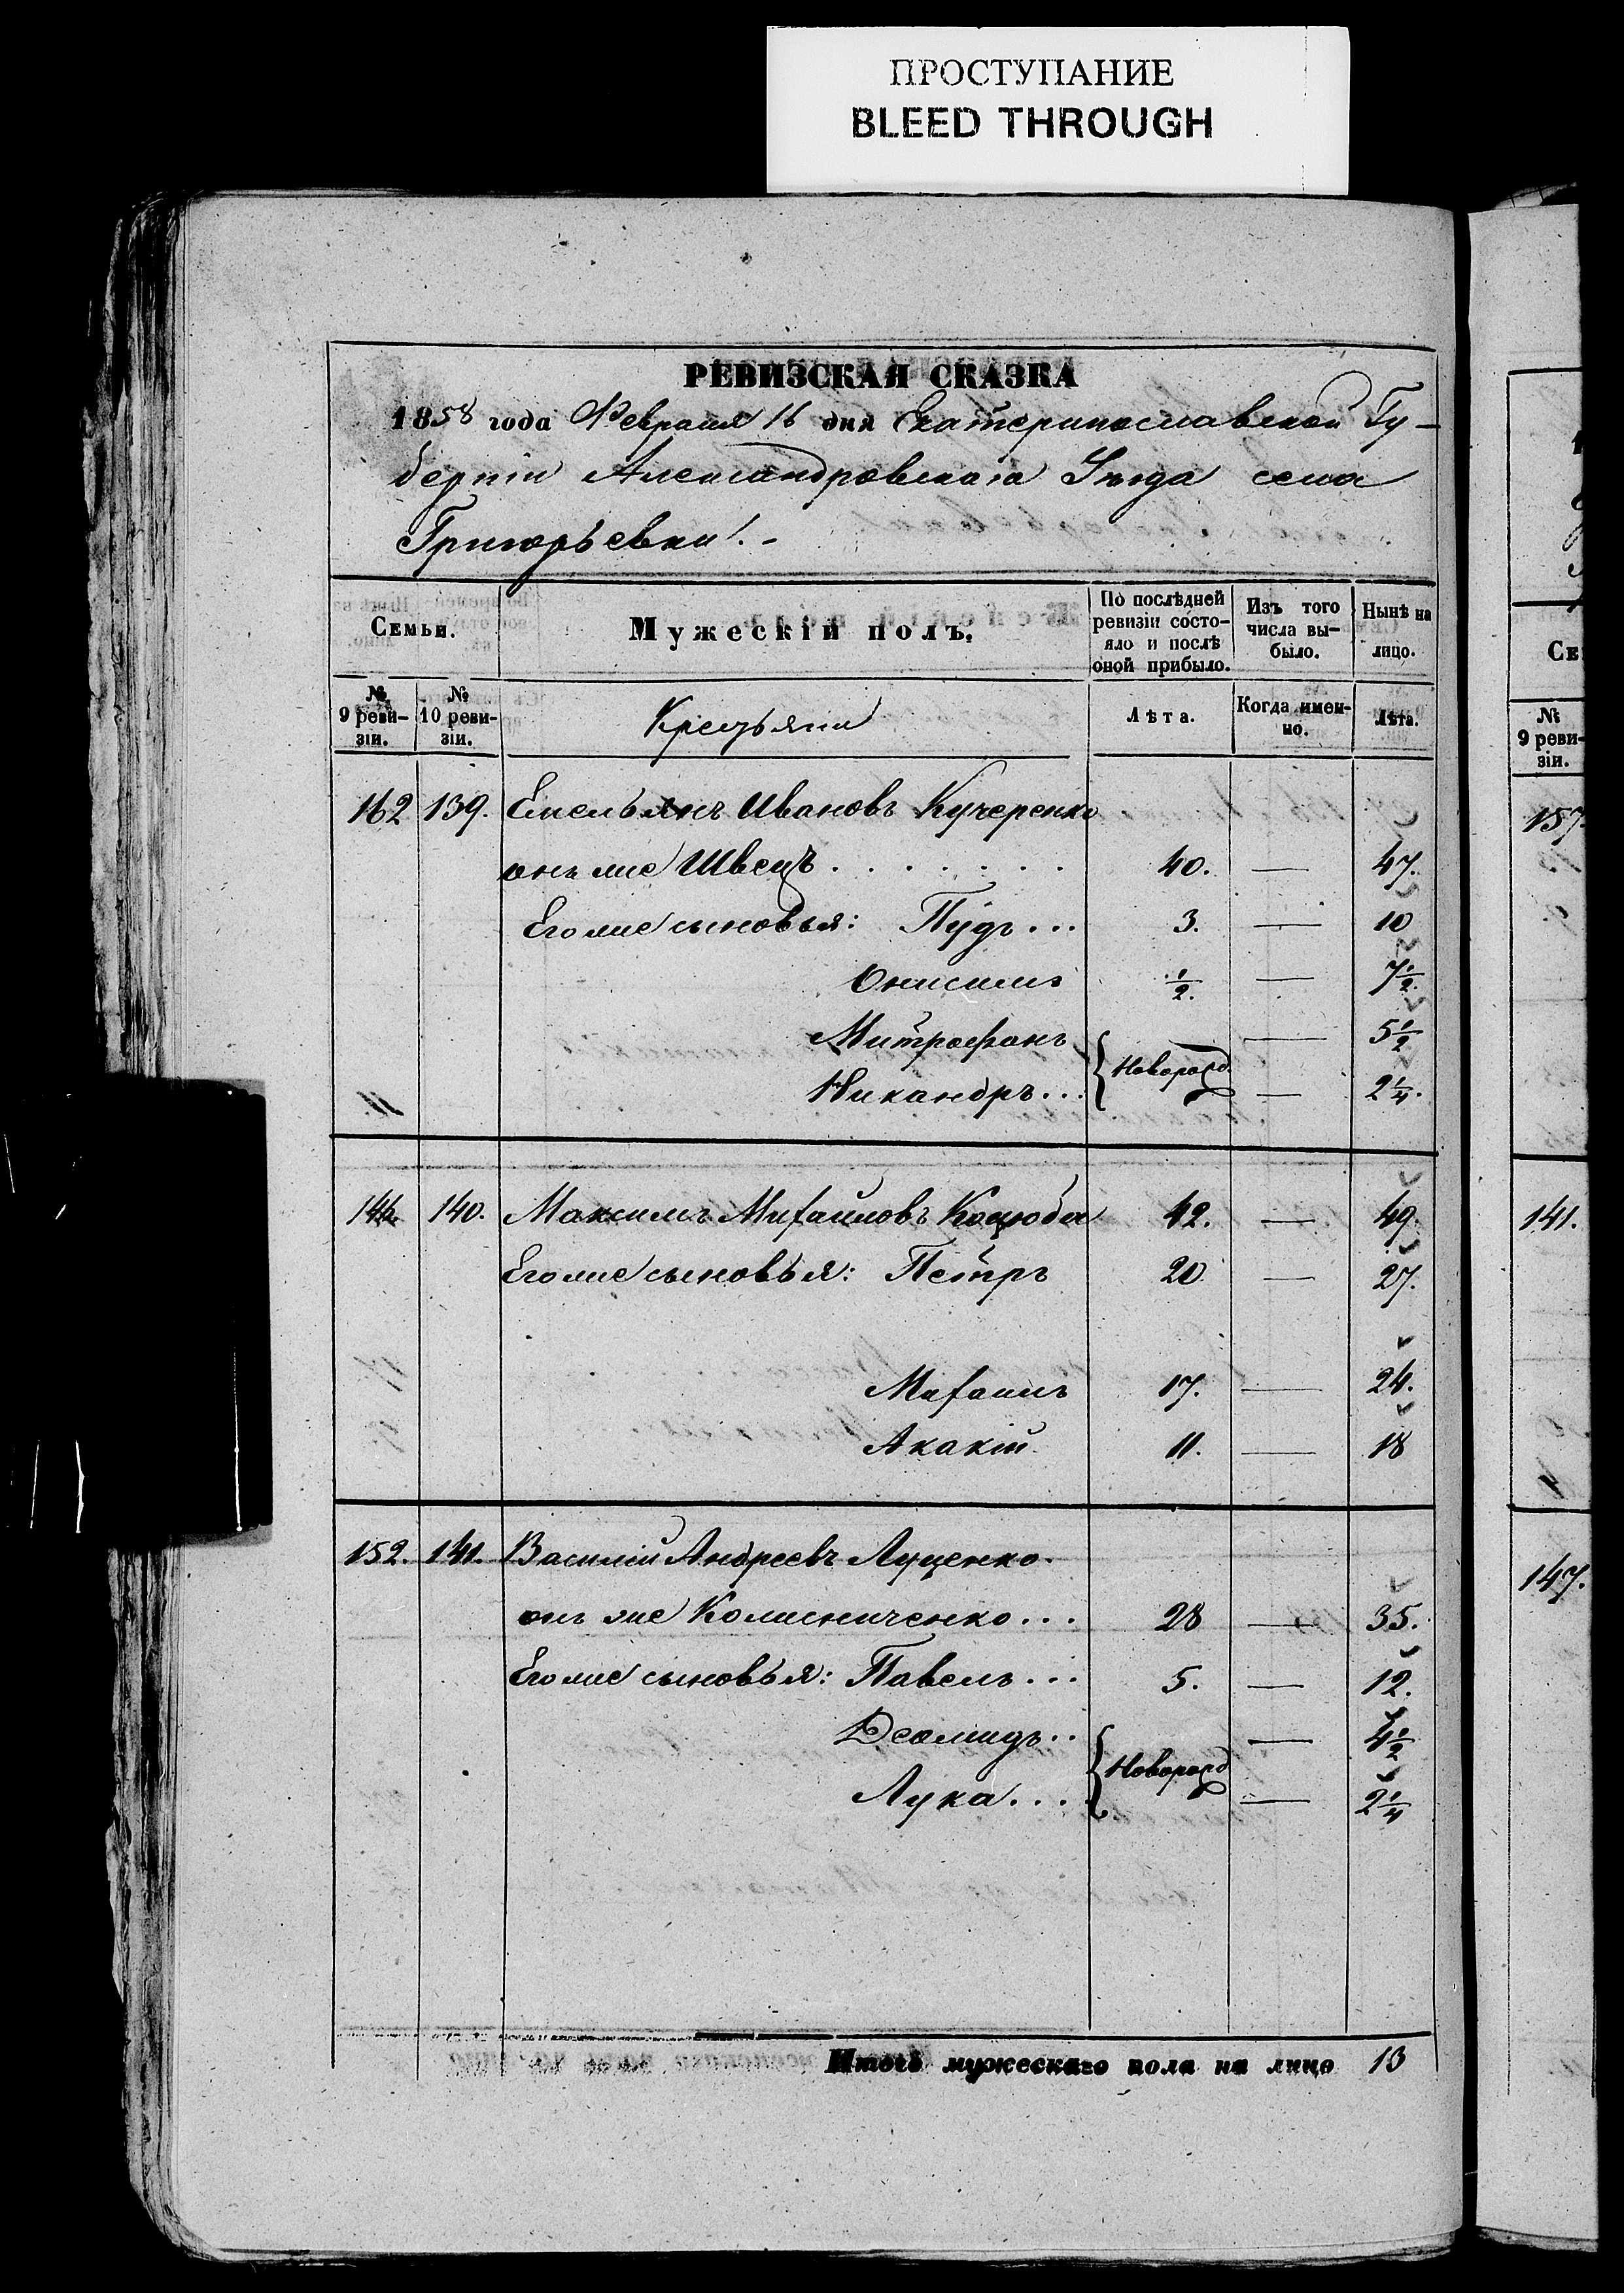 ПРОСТУПАНИЕ
BLEED THROUGH
РЕВИЗСКАЯ СКАЗКА
1858 года Февраля 16 дня Екатеринославской Гу-
берніи Александровскаго Уѣзда села
Григорьевки.-
Семьи.
Мужескій полъ.
По послѣдней ревизіи состо-яло и послѣ оной прибыло.
Изъ того числа вы-было.
Нынѣ на лицо.
№ 9 реви-зіи.
№ 10 реви-зіи.
Крестьяни
Лѣта.
Когда имен-но.
Лѣта.
162 139. Емельянъ Ивановъ Кучеренко
онъ же Швецъ . . . . . . . 40. — 47.
Его же сыновья: Пудъ ... 3. — 10
Онисимъ ½. — 7½.
Митрофанъ { Новорожд. — 5½
Никандръ ... — 2¼.
146 140. Максимъ Михайловъ Коцюба 42. — 49.
Его же сыновья: Петръ 20 — 27.
Михаилъ 17. — 24.
Акакій 11. — 18
152. 141. Василій Андреевъ Луценко.
онъ же Колисниченко ... 28 — 35.
Его же сыновья: Павелъ ... 5. — 12.
Деомидъ .. { Новорожд — 4½
Лука ... — 2¼
Итого мужескаго пола на лицо 13
Се
№ 9 реви-зіи.
157.
141.
147.